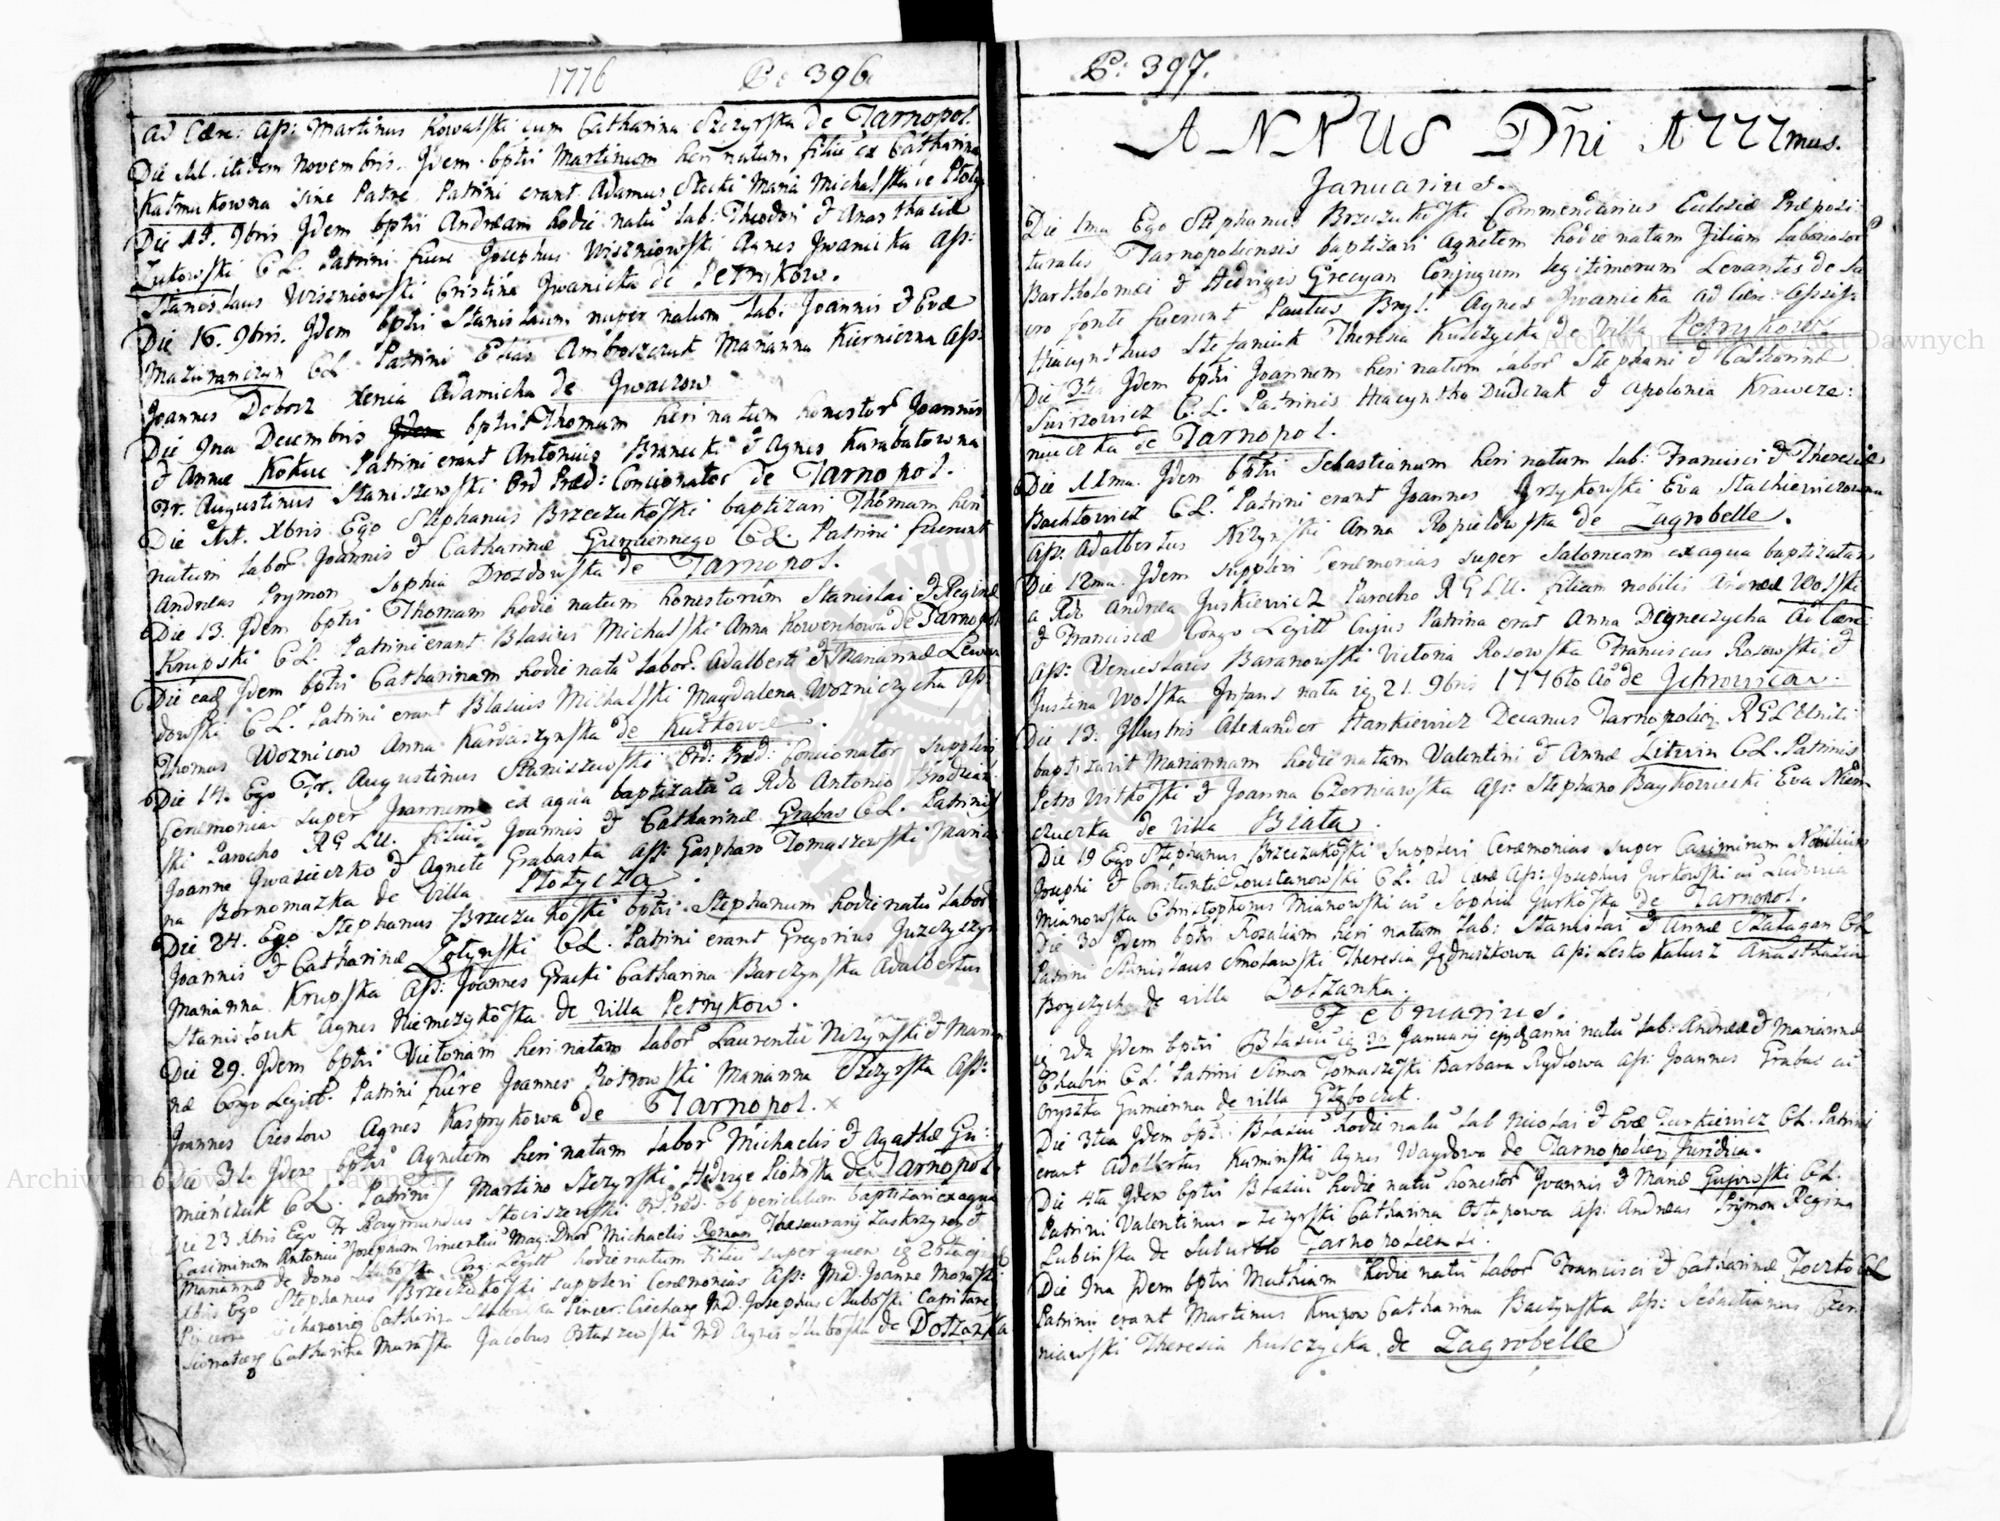 1776 P: 396
ad Cære: Ass: Martinus Kowalski cum Catharina Szczyrska de Tarnopol
Die 11. itidem Novembris. Jdem bptvi Martinum heri natum filiũ ex Catharina
Katmukowna sine Patre. Patrini erant Adamus Stecki Maria Michalska
Die 15. 9bris Jdem bptvi Andræam hodie natũ Lab: Theodori & Anasthasiæ
Zukowski C L. Patrini fuere Josephus Wiszniowski Agnes Jwanicka Ass:
Stanislaus Wiszniowski Cristina Jwanicka de Petrykow.
Die 16. 9bris. Jdem bptvi Stanislaum nuper natum Lab: Joannis & Evæ
CL Patrini Elias Ambroszczuk Marianna Kierniczna Ass:
Joannes Dobosz Xenia Adamicha de Jwaczow
Die Ina Decembris bptvi Thomam heri natum honestor Joannis
& Annæ Kokuc Patrini erant Antonius Branecki & Agnes Karabatowna
Fr. Augustinus Staniszewski Ord Præd: Concionator de Tarnopol.
Die 11. Xbris Ego Stephanus Brzeczukoski baptizavi Thomam heri
natum Labor Joannis & Catharinæ Gumiennego CL. Patrini fuerunt
Andreas Prymon Sophia Drozdowska de Tarnopol.
Die 13. Jdem bptvi Thomam hodie natum honestorum Stanislai & Reginæ
Krupski CL. Patrini erant Blasius Michalski Anna Kowenkowa de Tarnopol
Die ead Jdem bptvi Catharinam hodie natũ Labor. Adalberti & Mariannæ Lewan
dowski CL. Patrini erant Blasius Michalski Magdalena Wozniczycha Ass:
Thomas Woznicow Anna Kardaszynska de Kutkowce.
Die 14. Ego Fr. Augustinus Staniszewski Ord: Præd: Concionator supplevi
Ceremonias super Joannem ex aqua baptizatũ a Rdo Antonio Brodzian
ski Parocho R G L U. filiũ Joannis & Catharinæ Grabas CL. Patrinis
Joanne Jwasieczko & Agnete Grabaska Ass: Gasparo Tomaszewski Marian
na Bornomazka de Villa Ptotycza.
Die 24. Ego Stephanus Brzeczukoski bptvi Stephanum hodie natũ Labor
Joannis & Catharinæ Zotynski CL. Patrini erant Gregorius Juzczyszyn
Marianna Krupska Ass: Joannes Gracki Catharina Barczynska Adalbertus
Stanislouk Agnes Niemczykoska de villa Petrykow.
Die 29. Jdem bptvi Victoriam heri natam Labor Laurentii Nizynski & Marian
næ Congo Legitt. Patrini fuere Joannes Piotrowski Marianna Szczyrska Ass:
Joannes Crestow Agnes Kasprykowa de Tarnopol.
Die 31 Jdem bptvi Agnetem heri natam Labor Michaelis & Agathæ Gu:
mieńczuk CL Patrinis Martino Szczyrski Hedvige Piotrska de Tarnopol
Die 23 Xbris Ego Fr Raymundus Skociszewski Ord: Præd: ob periculum baptizavi ex aqua
Casimirum Antoniũ Josephum Vincentiũ Mag: Dnor Michaelis Roman Thesaurarii
Mariannæ de domo Congo Legitt hodie natum Filiũ super quem
Xbris Ego Stephanus Brzeczukoski supplevi Ceremonias Ass: Md: Joanne Morski
Catharina Pincer: Ciechan: Md: Josephus Stuboski Capitaneo
Catharina Muraska Jacobus Ostaszewski Md Agnes Stuboska de Dotzanka
P: 397.
ANNUS Dñi 1777mus.
Januarius.
Die 1ma Ego Stephanus Brzeczukoski Commendarius Ecclesiæ Præposi
turalis Tarnopoliensis baptizavi Agnetem hodie natam Filiam Laboriosor
Bartholomæi & Hedvigis Grecyan Conjugum legitimorum Levantes de Sa
cro fonte fuerunt Paulus Bryl. Agnes Jwanicka ad Cære: Assist:
Hiacynthus Stefaniuk Theresia Kulczycka de Villa Petrykow.
Die 3tia Jdem bptvi Joannem heri natum Labor Stephani & Catharinæ
Swirzowicz C. L. Patrinis Hiacyntho Dudczak & Apolonia Krawcze:
neuczka de Tarnopol.
Die 11ma. Jdem bptvi Sebastianum heri natum Lab: Francisci & Theresiæ
Bachtowicz CL. Patrini erant Joannes Grzykowski Eva Stachiewiczowna
Ass: Adalbertus Nizynski Anna Ropielowska de Zagrobelle.
Die 12ma. Jdem supplevi Ceremonias super Salomeam ex aqua baptizatam
a Rdo Andrea Juskiewicz Parocho R G L U. filiam nobilis Andreæ Wolski
& Franciscæ Congo Legitt Cujus Patrina erat Anna Deyneczycha Ad Cære:
Ass: Venceslaus Baranowski Victoria Rosowska Franciscus Rosowski &
Justina Wolska Infans nata 21. 9bris 1776to Ao de Jchrowica.
Die 13. Jllustris Alexander Stankiewicz Decanus Tarnopolien R G L Uniti
baptizavit Mariannam hodie natam Valentini & Annæ Litwin CL. Patrinis
Petro Witkoski & Joanna Czerniawska Ass: Stephano Baykowiecki Eva Niem
czuczka de villa Biata.
Die 19 Ego Stephanus Brzeczukoski supplevi Ceremonias super Casimirum Nobilium
Josephi & Constantiæ CL. ad Cære Ass: Josephus Gurkowski cũ Ludovica
Mianowska Christophorus Mianowski cũ Sophia Gurkoska de Tarnopol.
Die 30 Jdem bptvi Rozaliam heri natam Lab: Stanislai & Annæ Szatagan CL
Patrini Stanislaus Smotawski Theresia Jędruszkowa Ass: Lesko Katusz Anasthazia
Boyczych de villa Dotzanka.
Februarius.
2da Jdem bptvi Blasiũ 30 Januarii ejusd anni natũ Lab: Andreæ & Mariannæ
Chabin CL. Patrini Simon Tomaszeski Barbara Rydlowa Ass: Joannes Grabas cũ
Oryszka Gumienna de villa Głęboczek.
Die 3tia Jdem bptvi Blasiũ hodie natũ Lab Nicolai & Evæ Turkiewicz CL. Patrini
erant Adalbertus Kaminski Agnes Waydowa de Tarnopolien Juridica.
Die 4ta Jdem bptvi Blasiũ hodie natũ honestor Joannis & Mariæ Gujowski CL.
Patrini Valentinus Szczyrski Catharina Ostapowa Ass: Andreas Prymon Regina
Lubinska de Suburbio Tarnopoliensi.
Die Ina Jdem bptvi Mathiam hodie natũ Labor Francisci & Catharinæ Toczko CL
Patrini erant Martinus Krupow Catharina Baczynska Ass: Sebastianus Czer
niawski Theresia Kulczycka de Zagrobelle
Archiwum Główne Akt Dawnych
Archiwum Główne Akt Dawnych